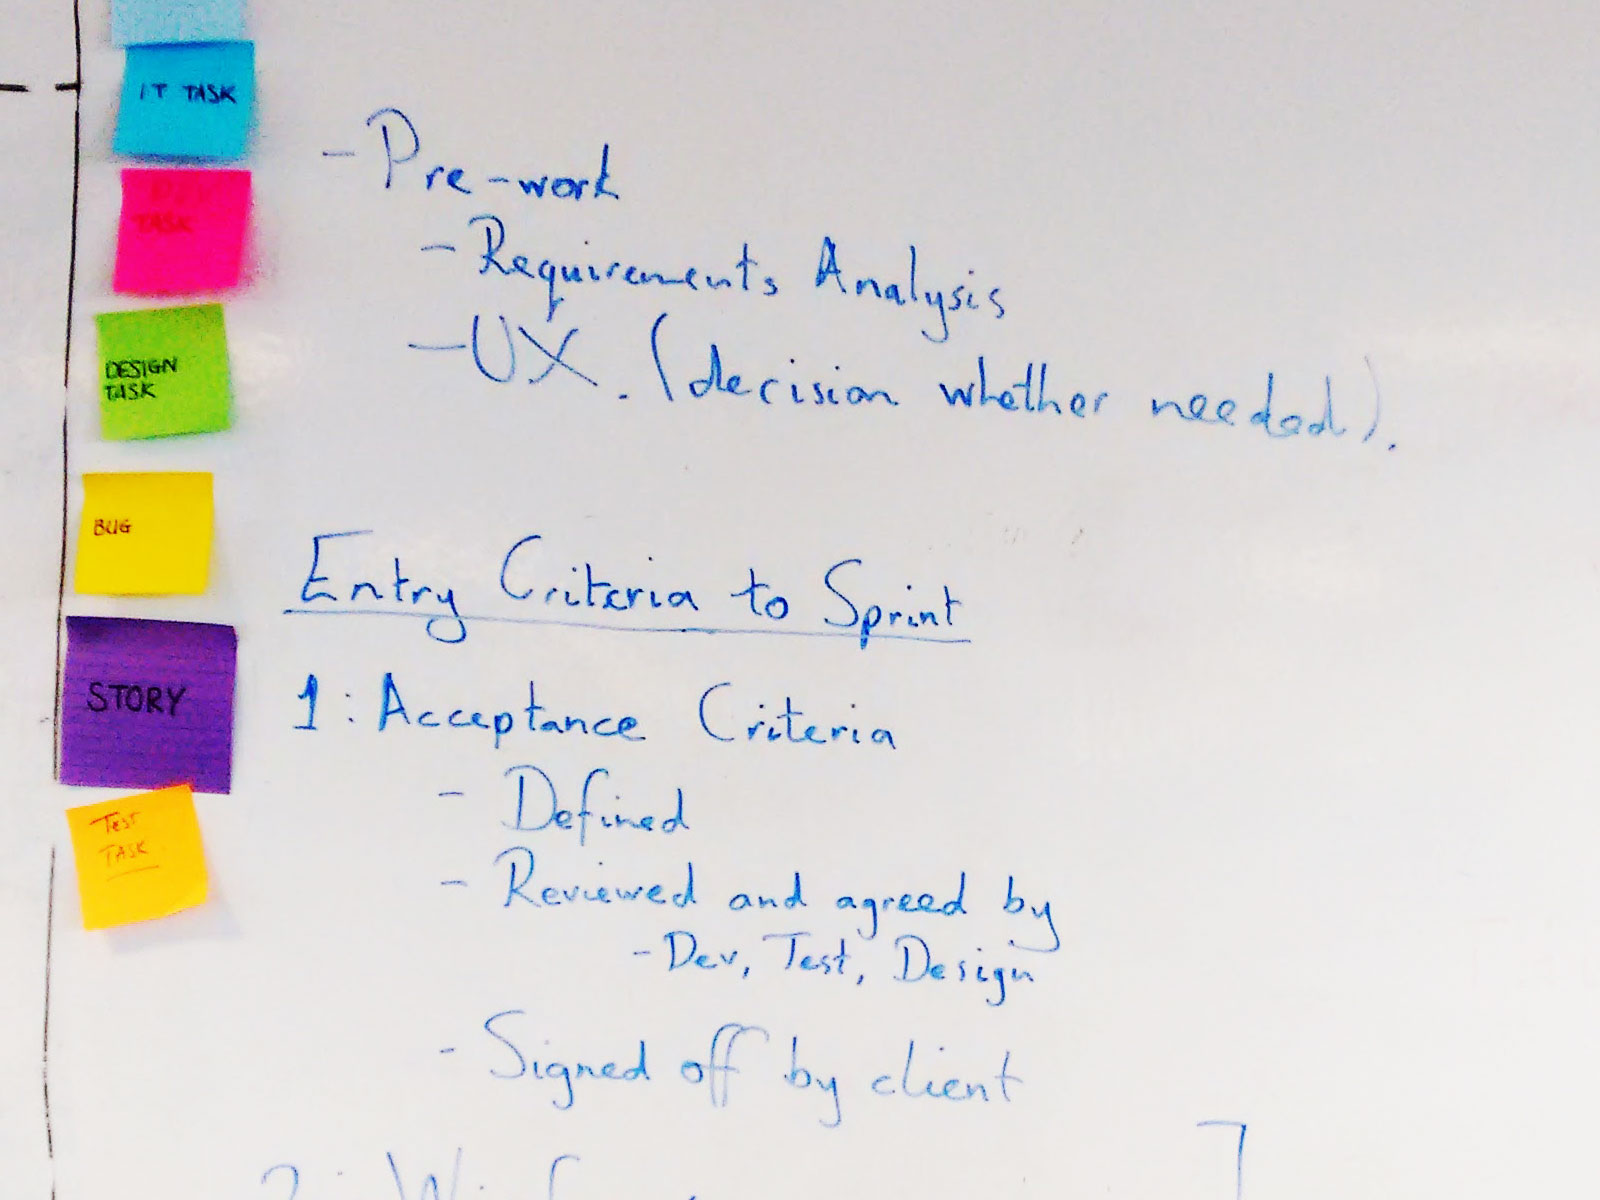 IT TASK
TASK
DESIGN
TASK
BUG
STORY
Test
TASK
- Pre-work
- Requirements Analysis
- UX. (decision whether needed).
Entry Criteria to Sprint
1: Acceptance Criteria
- Defined
- Reviewed and agreed by
- Dev, Test, Design
- Signed off by client